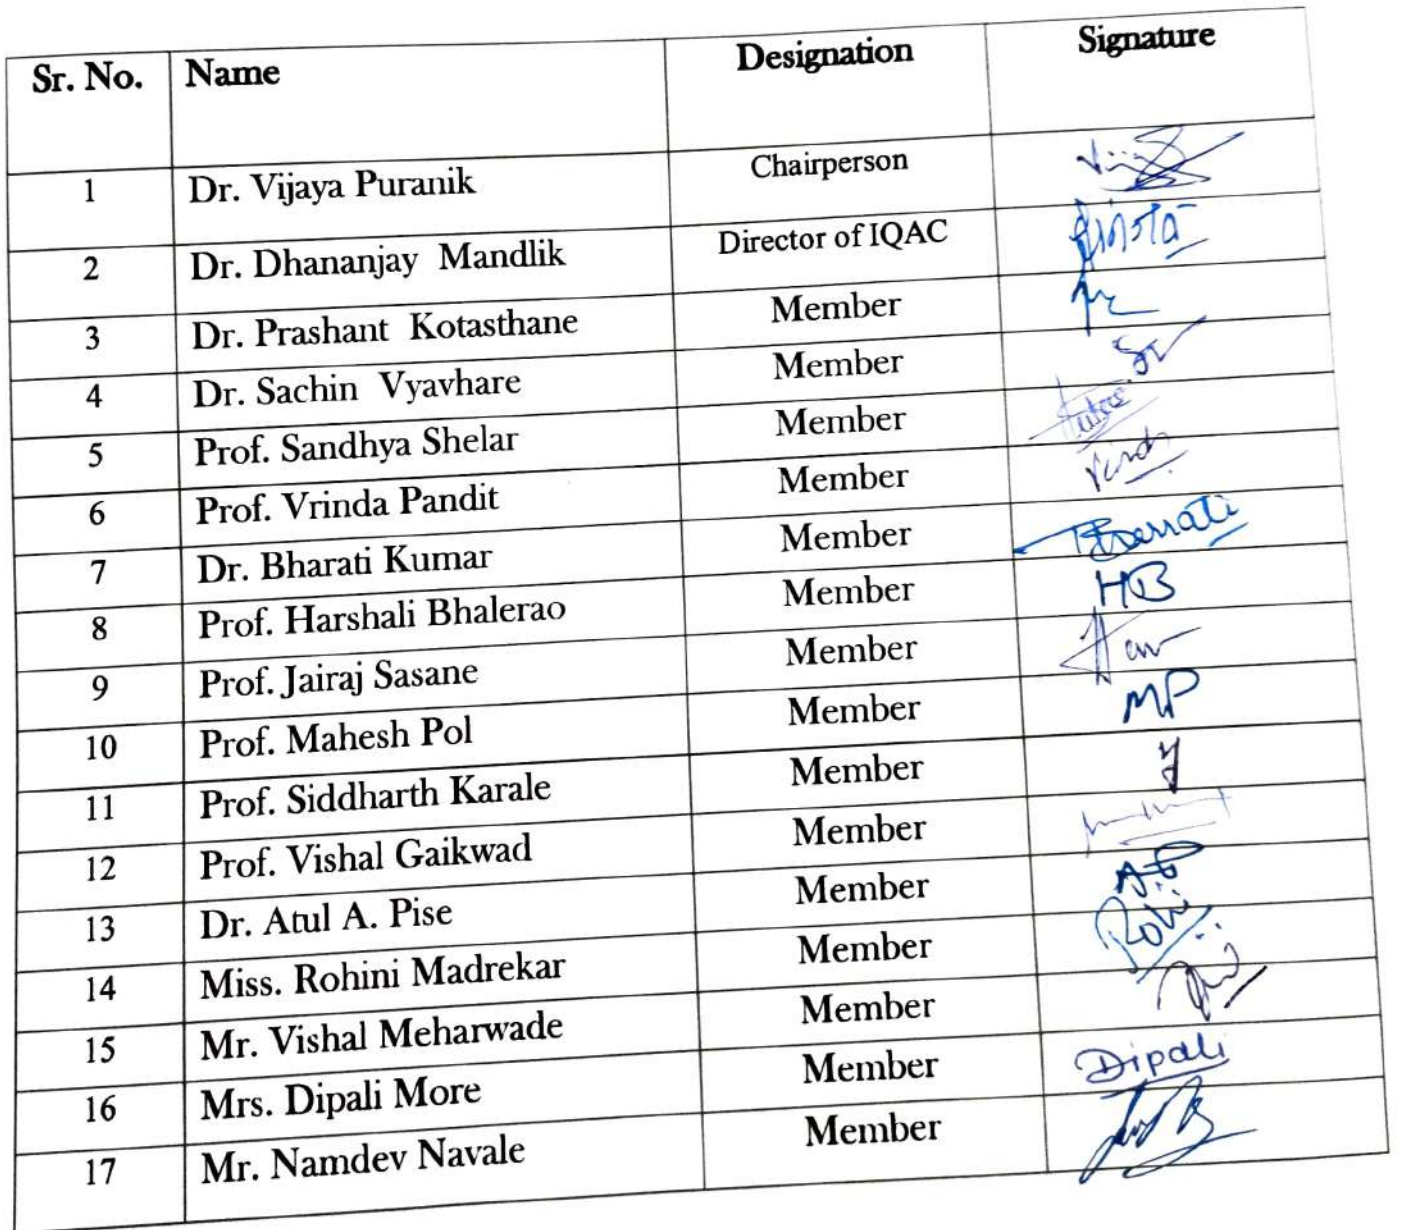 Sr. No. Name Designation Signature
1 Dr. Vijaya Puranik Chairperson
2 Dr. Dhananjay Mandlik Director of IQAC
3 Dr. Prashant Kotasthane Member
4 Dr. Sachin Vyavhare Member
5 Prof. Sandhya Shelar Member
6 Prof. Vrinda Pandit Member
7 Dr. Bharati Kumar Member
8 Prof. Harshali Bhalerao Member HB
9 Prof. Jairaj Sasane Member
10 Prof. Mahesh Pol Member MP
11 Prof. Siddharth Karale Member
12 Prof. Vishal Gaikwad Member
13 Dr. Atul A. Pise Member
14 Miss. Rohini Madrekar Member Rohi
15 Mr. Vishal Meharwade Member
16 Mrs. Dipali More Member Dipali
17 Mr. Namdev Navale Member